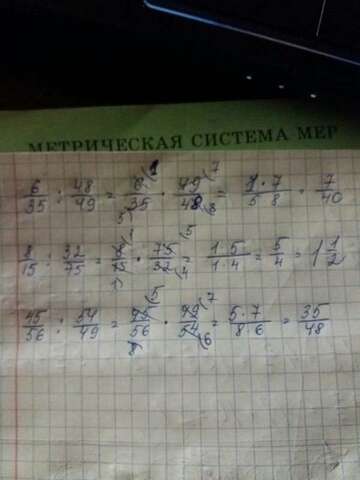 МЕТРИЧЕСКАЯ СИСТЕМА МЕР
6/35 : 48/49 = 6/35 · 49/48 = 1 · 7/5 · 8 = 7/40
8/15 : 32/75 = 8/15 · 75/32 = 1 · 5/1 · 4 = 5/4 = 1 1/2
45/56 : 54/49 = 45/56 · 49/54 = 5 · 7/8 · 6 = 35/48